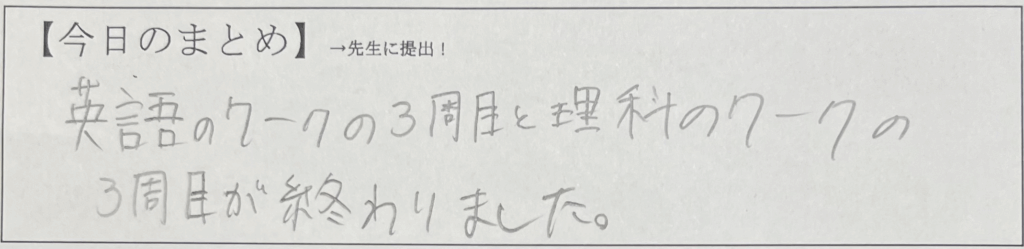 【今日のまとめ】→先生に提出！
英語のワークの3周目と理科のワークの
3周目が終わりました。